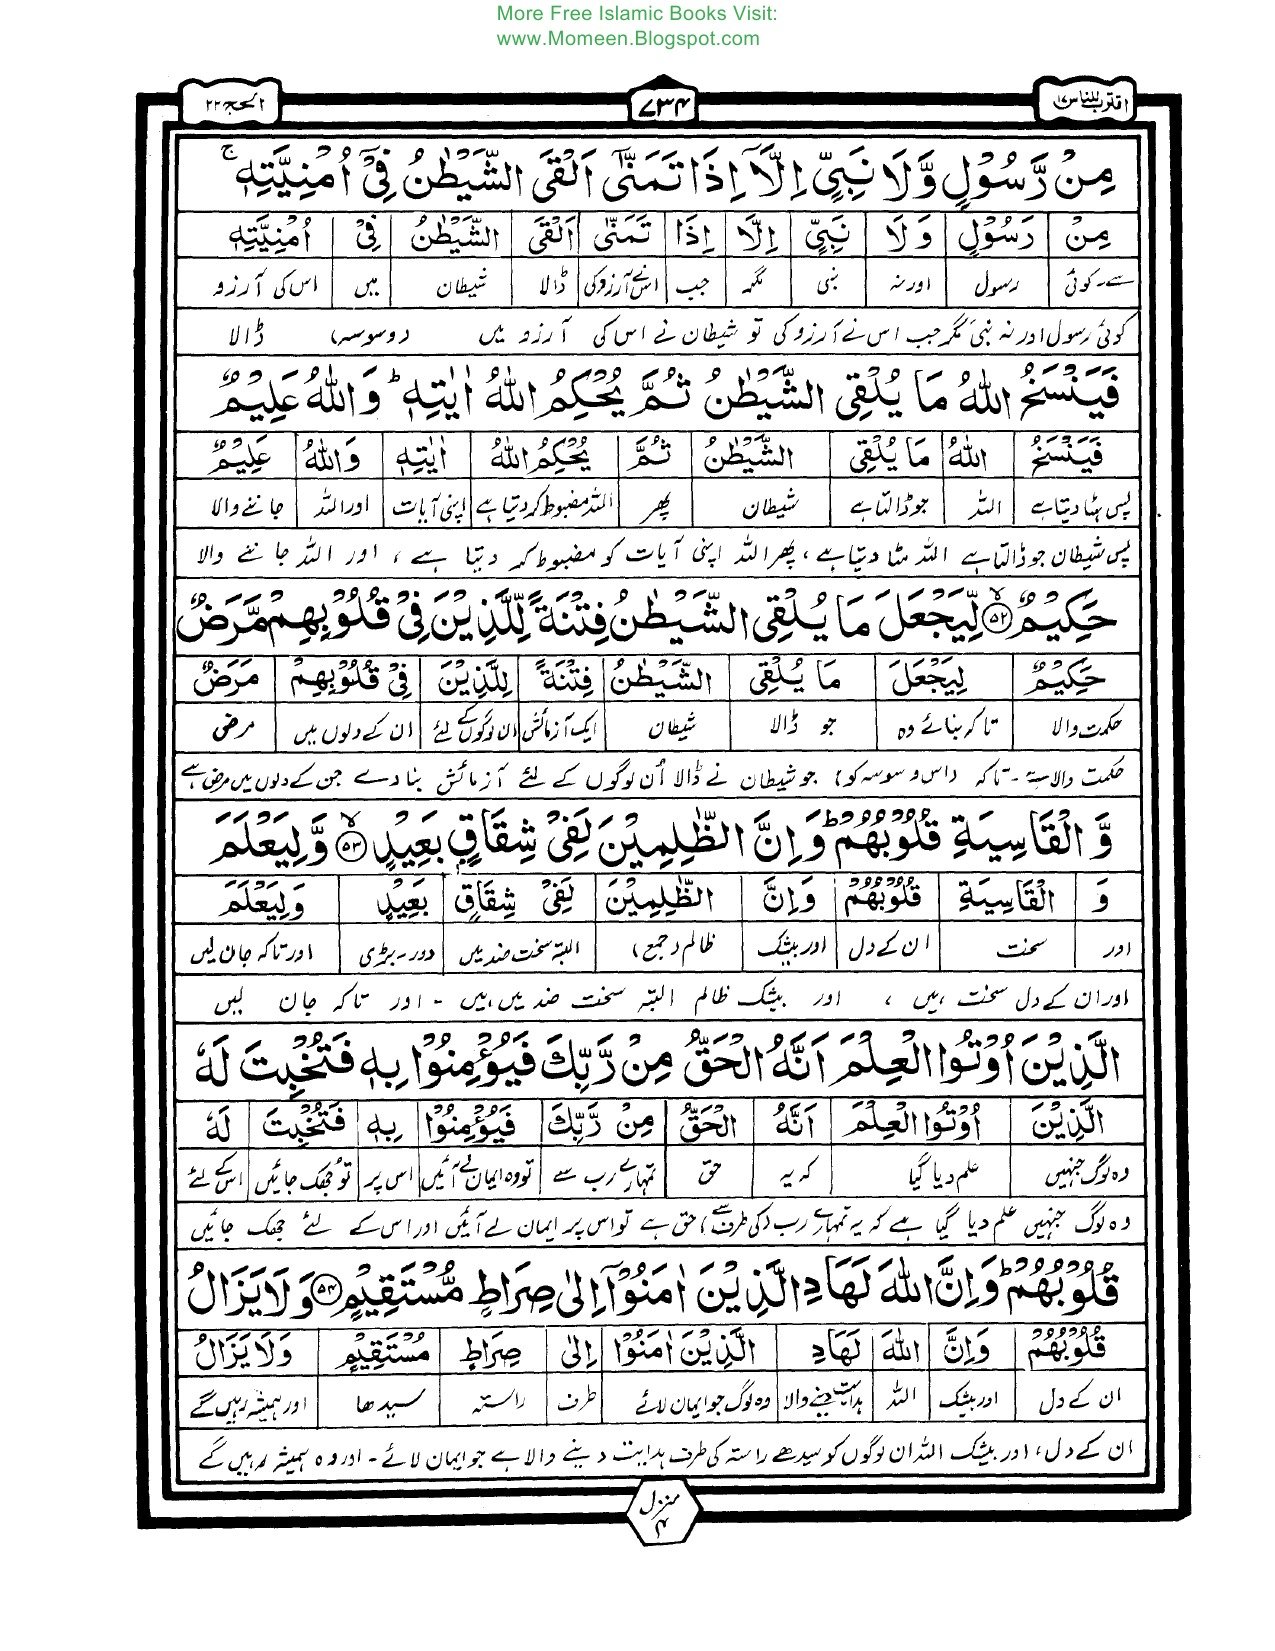 More Free Islamic Books Visit:
www.Momeen.Blogspot.com
اقترب للناس ۱۷
۷۳۴
الحج ۲۲
مِنْ رَّسُوْلٍ وَّلَا نَبِیٍّ اِلَّاۤ اِذَا تَمَنّٰۤی اَلْقَی الشَّیْطٰنُ فِیْۤ اُمْنِیَّتِهٖ ۚ
مِنْ رَسُوْلٍ وَ لَا نَبِیٍّ اِلَّا اِذَا تَمَنّٰی اَلْقَی الشَّیْطٰنُ فِیْ اُمْنِیَّتِهٖ
سے۔کوئی رسول اور نہ نبی مگر جب اس نے آرزو کی ڈالا شیطان میں اس کی آرزو
کوئی رسول اور نہ نبی مگر جب اس نے آرزو کی تو شیطان نے اس کی آرزو میں (وسوسہ) ڈالا
فَیَنْسَخُ اللّٰهُ مَا یُلْقِی الشَّیْطٰنُ ثُمَّ یُحْكِمُ اللّٰهُ اٰیٰتِهٖ ؕ وَاللّٰهُ عَلِیْمٌ
فَیَنْسَخُ اللّٰهُ مَا یُلْقِی الشَّیْطٰنُ ثُمَّ یُحْكِمُ اللّٰهُ اٰیٰتِهٖ وَاللّٰهُ عَلِیْمٌ
پس ہٹا دیتا ہے اللہ جو ڈالتا ہے شیطان پھر اللہ مضبوط کر دیتا ہے اپنی آیات اور اللہ جاننے والا
پس شیطان جو ڈالتا ہے اللہ مٹا دیتا ہے، پھر اللہ اپنی آیات کو مضبوط کر دیتا ہے، اور اللہ جاننے والا
حَكِیْمٌ ۙ﴿۵۲﴾ لِّیَجْعَلَ مَا یُلْقِی الشَّیْطٰنُ فِتْنَةً لِّلَّذِیْنَ فِیْ قُلُوْبِهِمْ مَّرَضٌ
حَكِیْمٌ لِیَجْعَلَ مَا یُلْقِی الشَّیْطٰنُ فِتْنَةً لِلَّذِیْنَ فِیْ قُلُوْبِهِمْ مَرَضٌ
حکمت والا تاکہ بنائے وہ جو ڈالا شیطان ایک آزمائش ان لوگوں کے لئے ان کے دلوں میں مرض
حکمت والا ہے۔ تاکہ (اس وسوسہ کو) جو شیطان نے ڈالا اُن لوگوں کے لئے آزمائش بنا دے جن کے دلوں میں مرض ہے
وَّ الْقَاسِیَةِ قُلُوْبُهُمْ ؕ وَاِنَّ الظّٰلِمِیْنَ لَفِیْ شِقَاقٍۭ بَعِیْدٍ ۙ﴿۵۳﴾ وَّلِیَعْلَمَ
وَ الْقَاسِیَةِ قُلُوْبُهُمْ وَاِنَّ الظّٰلِمِیْنَ لَفِیْ شِقَاقٍ بَعِیْدٍ وَلِیَعْلَمَ
اور سخت ان کے دل اور بیشک ظالم (جمع) البتہ سخت ضد میں دور۔بڑی اور تاکہ جان لیں
اور ان کے دل سخت ہیں، اور بیشک ظالم البتہ سخت ضد میں ہیں۔ اور تاکہ جان لیں
الَّذِیْنَ اُوْتُوا الْعِلْمَ اَنَّهُ الْحَقُّ مِنْ رَّبِّكَ فَیُؤْمِنُوْا بِهٖ فَتُخْبِتَ لَهٗ
الَّذِیْنَ اُوْتُوا الْعِلْمَ اَنَّهُ الْحَقُّ مِنْ رَّبِّكَ فَیُؤْمِنُوْا بِهٖ فَتُخْبِتَ لَهٗ
وہ لوگ جنہیں علم دیا گیا کہ یہ حق تمہارے رب سے تو وہ ایمان لے آئیں اس پر تو جھک جائیں اس کے لئے
وہ لوگ جنہیں علم دیا گیا ہے کہ یہ تمہارے رب (کی طرف سے) حق ہے تو اس پر ایمان لے آئیں اور اس کے لئے جھک جائیں
قُلُوْبُهُمْ ؕ وَاِنَّ اللّٰهَ لَهَادِ الَّذِیْنَ اٰمَنُوْۤا اِلٰی صِرَاطٍ مُّسْتَقِیْمٍ ﴿۵۴﴾ وَلَا یَزَالُ
قُلُوْبُهُمْ وَاِنَّ اللّٰهَ لَهَادِ الَّذِیْنَ اٰمَنُوْا اِلٰی صِرَاطٍ مُسْتَقِیْمٍ وَلَا یَزَالُ
ان کے دل اور بیشک اللہ ہدایت دینے والا وہ لوگ جو ایمان لائے طرف راستہ سیدھا اور ہمیشہ رہیں گے
ان کے دل، اور بیشک اللہ ان لوگوں کو سیدھے راستہ کی طرف ہدایت دینے والا ہے جو ایمان لائے۔ اور وہ ہمیشہ رہیں گے
منزل ۴